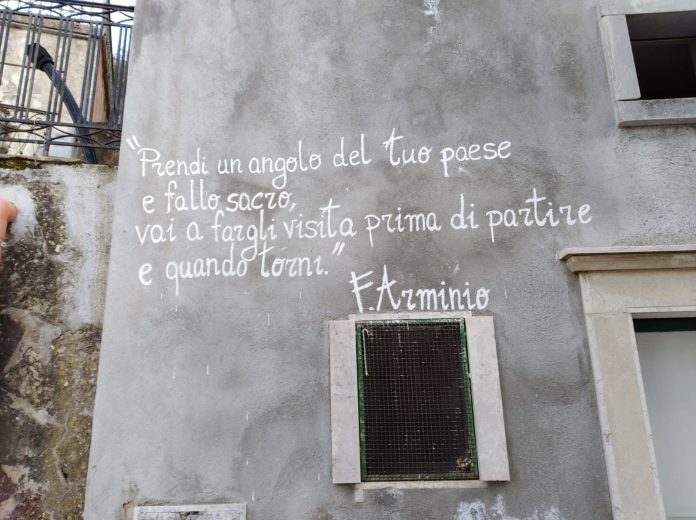 "Prendi un angolo del tuo paese
e fallo sacro,
vai a fargli visita prima di partire
e quando torni."
F. Arminio